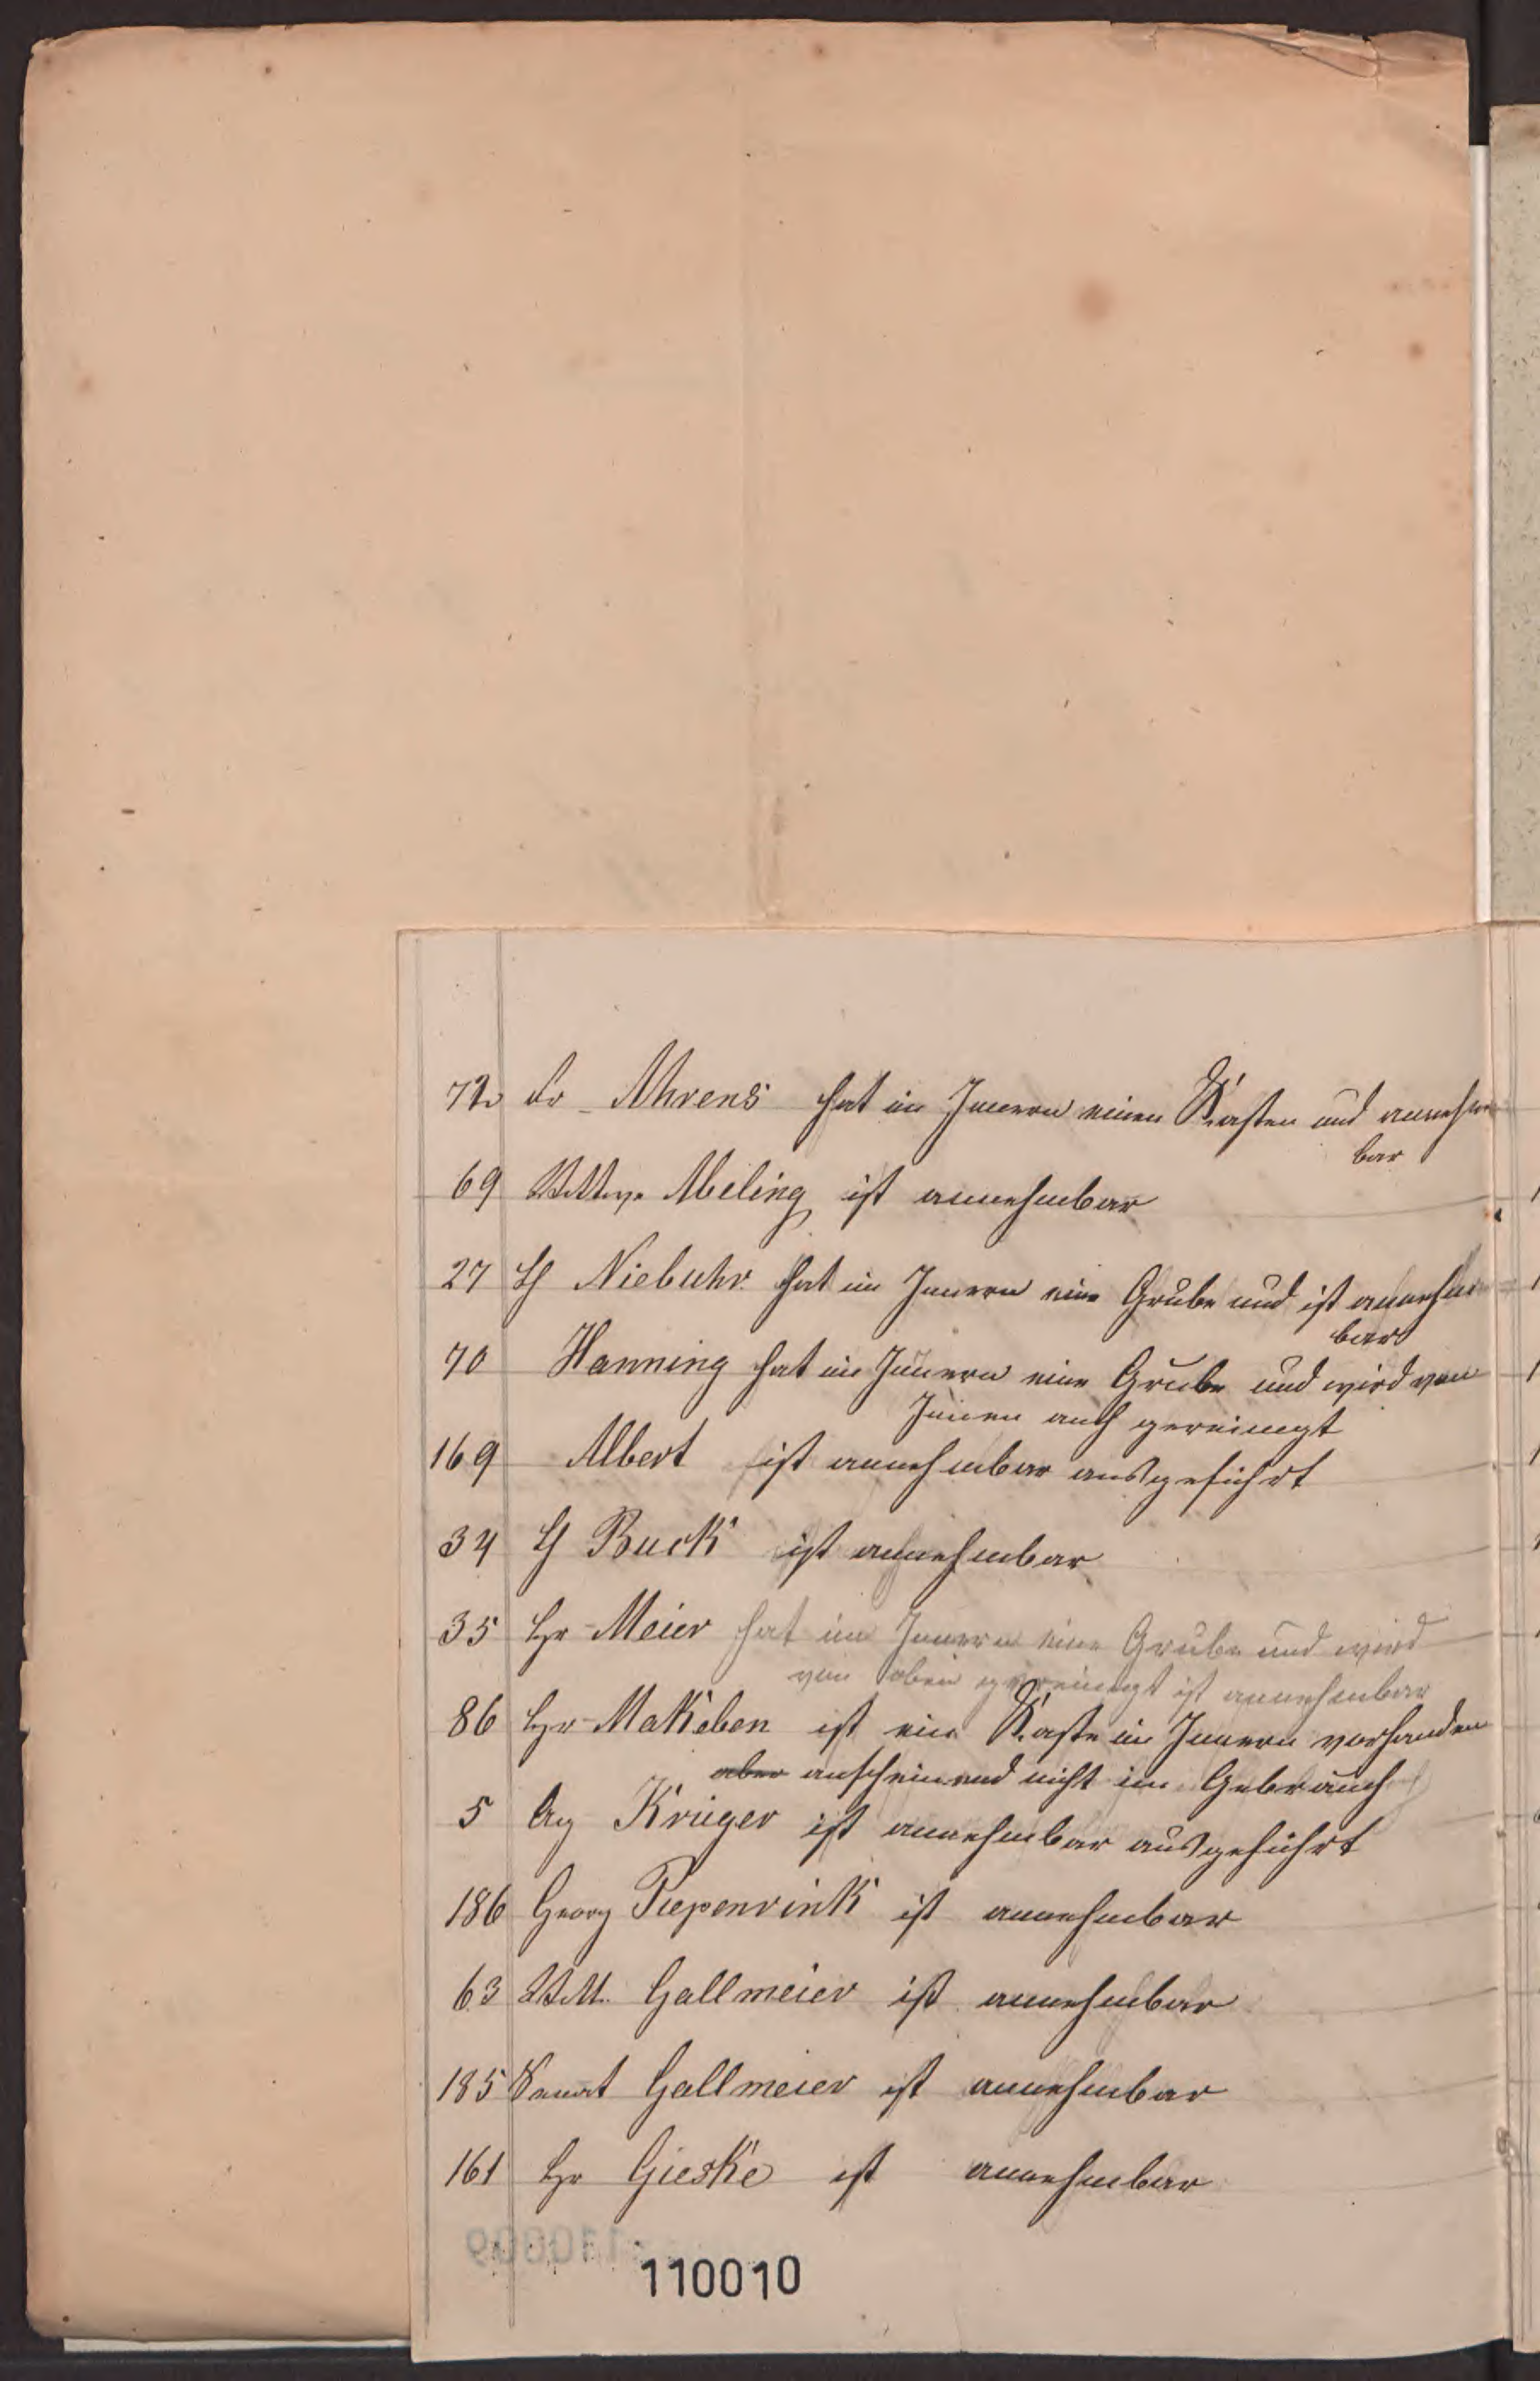 72 Fr. Ahrens hat im Innern einen Kasten und annehm
bar
69 Wittwe Abeling ist annehmbar
27 H Niebuhr hat im Innern eine Grube und ist annehm
bar
70 Hanning hat im Innern eine Grube und wird von
Innen auch gereinigt
169 Albert ist annehmbar ausgeführt
34 H Buck ist annehmbar
35 Hr Meier hat im Innern eine Grube und wird
von oben gereinigt ist annehmbar
86 Hr Makeben ist ein Kaste im Innern vorhanden
aber anscheinend nicht im Gebrauch
5 Aug Krüger ist annehmbar ausgeführt
186 Georg Piepenrink ist annehmbar
63 Witt. Gallmeier ist annehmbar
185 Senat Gallmeier ist annehmbar
161 Hr Gieske ist annehmbar
110010